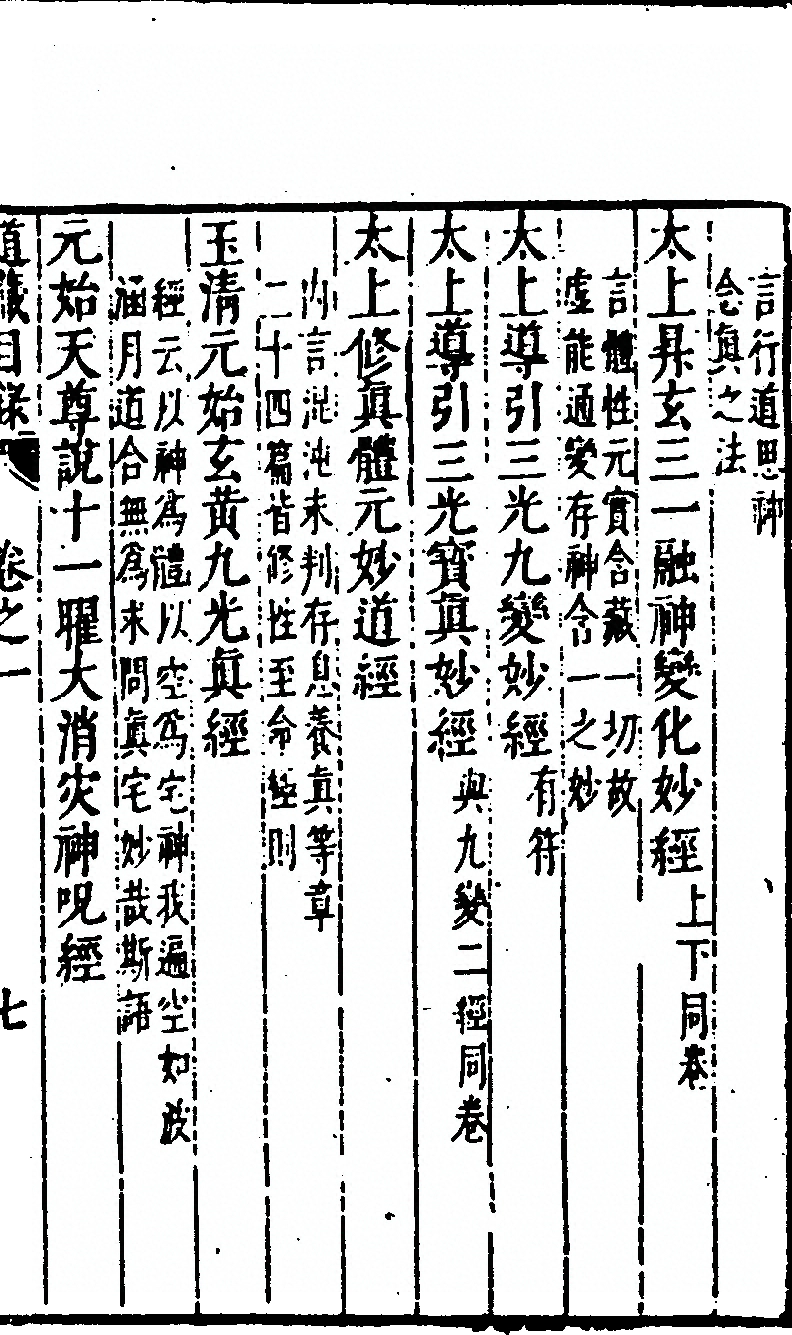 言行道思神
念眞之法
太上昇玄三一融神變化妙經上下同卷
言體性元實含藏一切故
虛能通變存神含一之妙
太上導引三光九變妙經有符
太上導引三光寶眞妙經與九變二經同卷
太上修眞體元妙道經
內言混沌未判存息養眞等章
二十四篇皆修性至命極則
玉清元始玄黃九光眞經
經云以神爲體以空爲宅神我遍空如波
涵月道合無爲求問眞宅妙哉斯語
元始天尊說十一曜大消灾神呪經
道藏目錄 卷之一 七